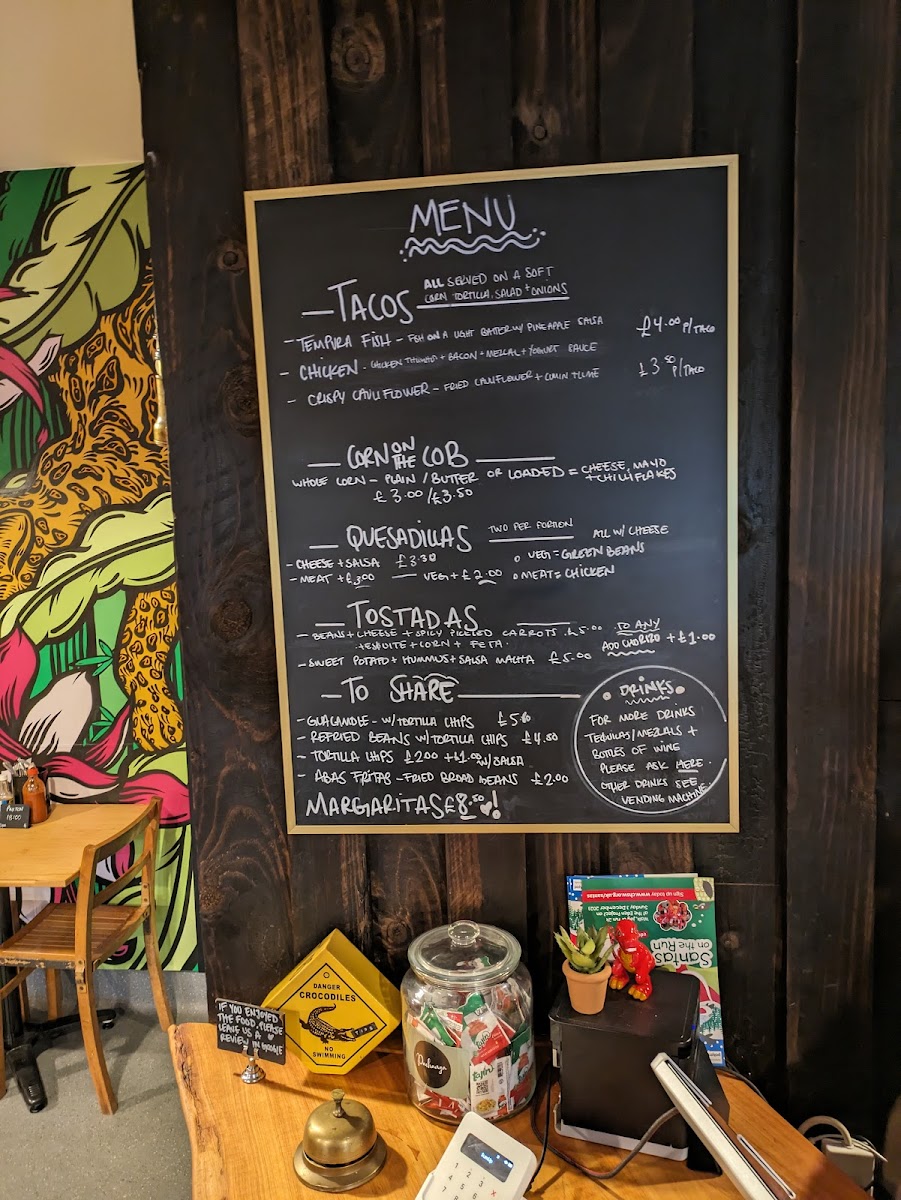 MENU
TACOS ALL SERVED ON A SOFT
CORN TORTILLA, SALAD + ONIONS
- TEMPURA FISH - FISH ON A LIGHT BATTER W/ PINEAPPLE SALSA £4.00 P/TACO
- CHICKEN - CHICKEN THIGHS + BACON + MEZCAL + YOGHURT SAUCE £3.50 P/TACO
- CRISPY CAULIFLOWER - FRIED CAULIFLOWER + CUMIN
CORN ON THE COB
WHOLE CORN - PLAIN / BUTTER OR LOADED = CHEESE, MAYO
+ CHILLI FLAKES
£3.00 / £3.50
QUESADILLAS TWO PER PORTION ALL W/ CHEESE
- CHEESE + SALSA £3.30 o VEG = GREEN BEANS
- MEAT + £3.00 — VEG + £2.00 o MEAT = CHICKEN
TOSTADAS
- BEANS + CHEESE + SPICY PICKLED CARROTS £5.00 TO ANY
+ CORN + FETA. ADD CHORIZO + £1.00
- SWEET POTATO + HUMMUS + SALSA MACHA £5.00
TO SHARE
- GUACAMOLE - W/ TORTILLA CHIPS
- REFRIED BEANS W/ TORTILLA CHIPS £4.50
- TORTILLA CHIPS £2.00 + £1.00 W/ SALSA
- ABAS FRITAS - FRIED BROAD BEANS £2.00
MARGARITAS £8.50!
DRINKS
FOR MORE DRINKS
TEQUILAS / MEZCALS +
BOTTLES OF WINE
PLEASE ASK HERE.
OTHER DRINKS SEE
VENDING MACHINE
DANGER
CROCODILES
NO
SWIMMING
IF YOU ENJOYED
THE FOOD, PLEASE
LEAVE US A
REVIEW IN GOOGLE
Tajín
Santas
on the Run
Sunday 3 December 2023